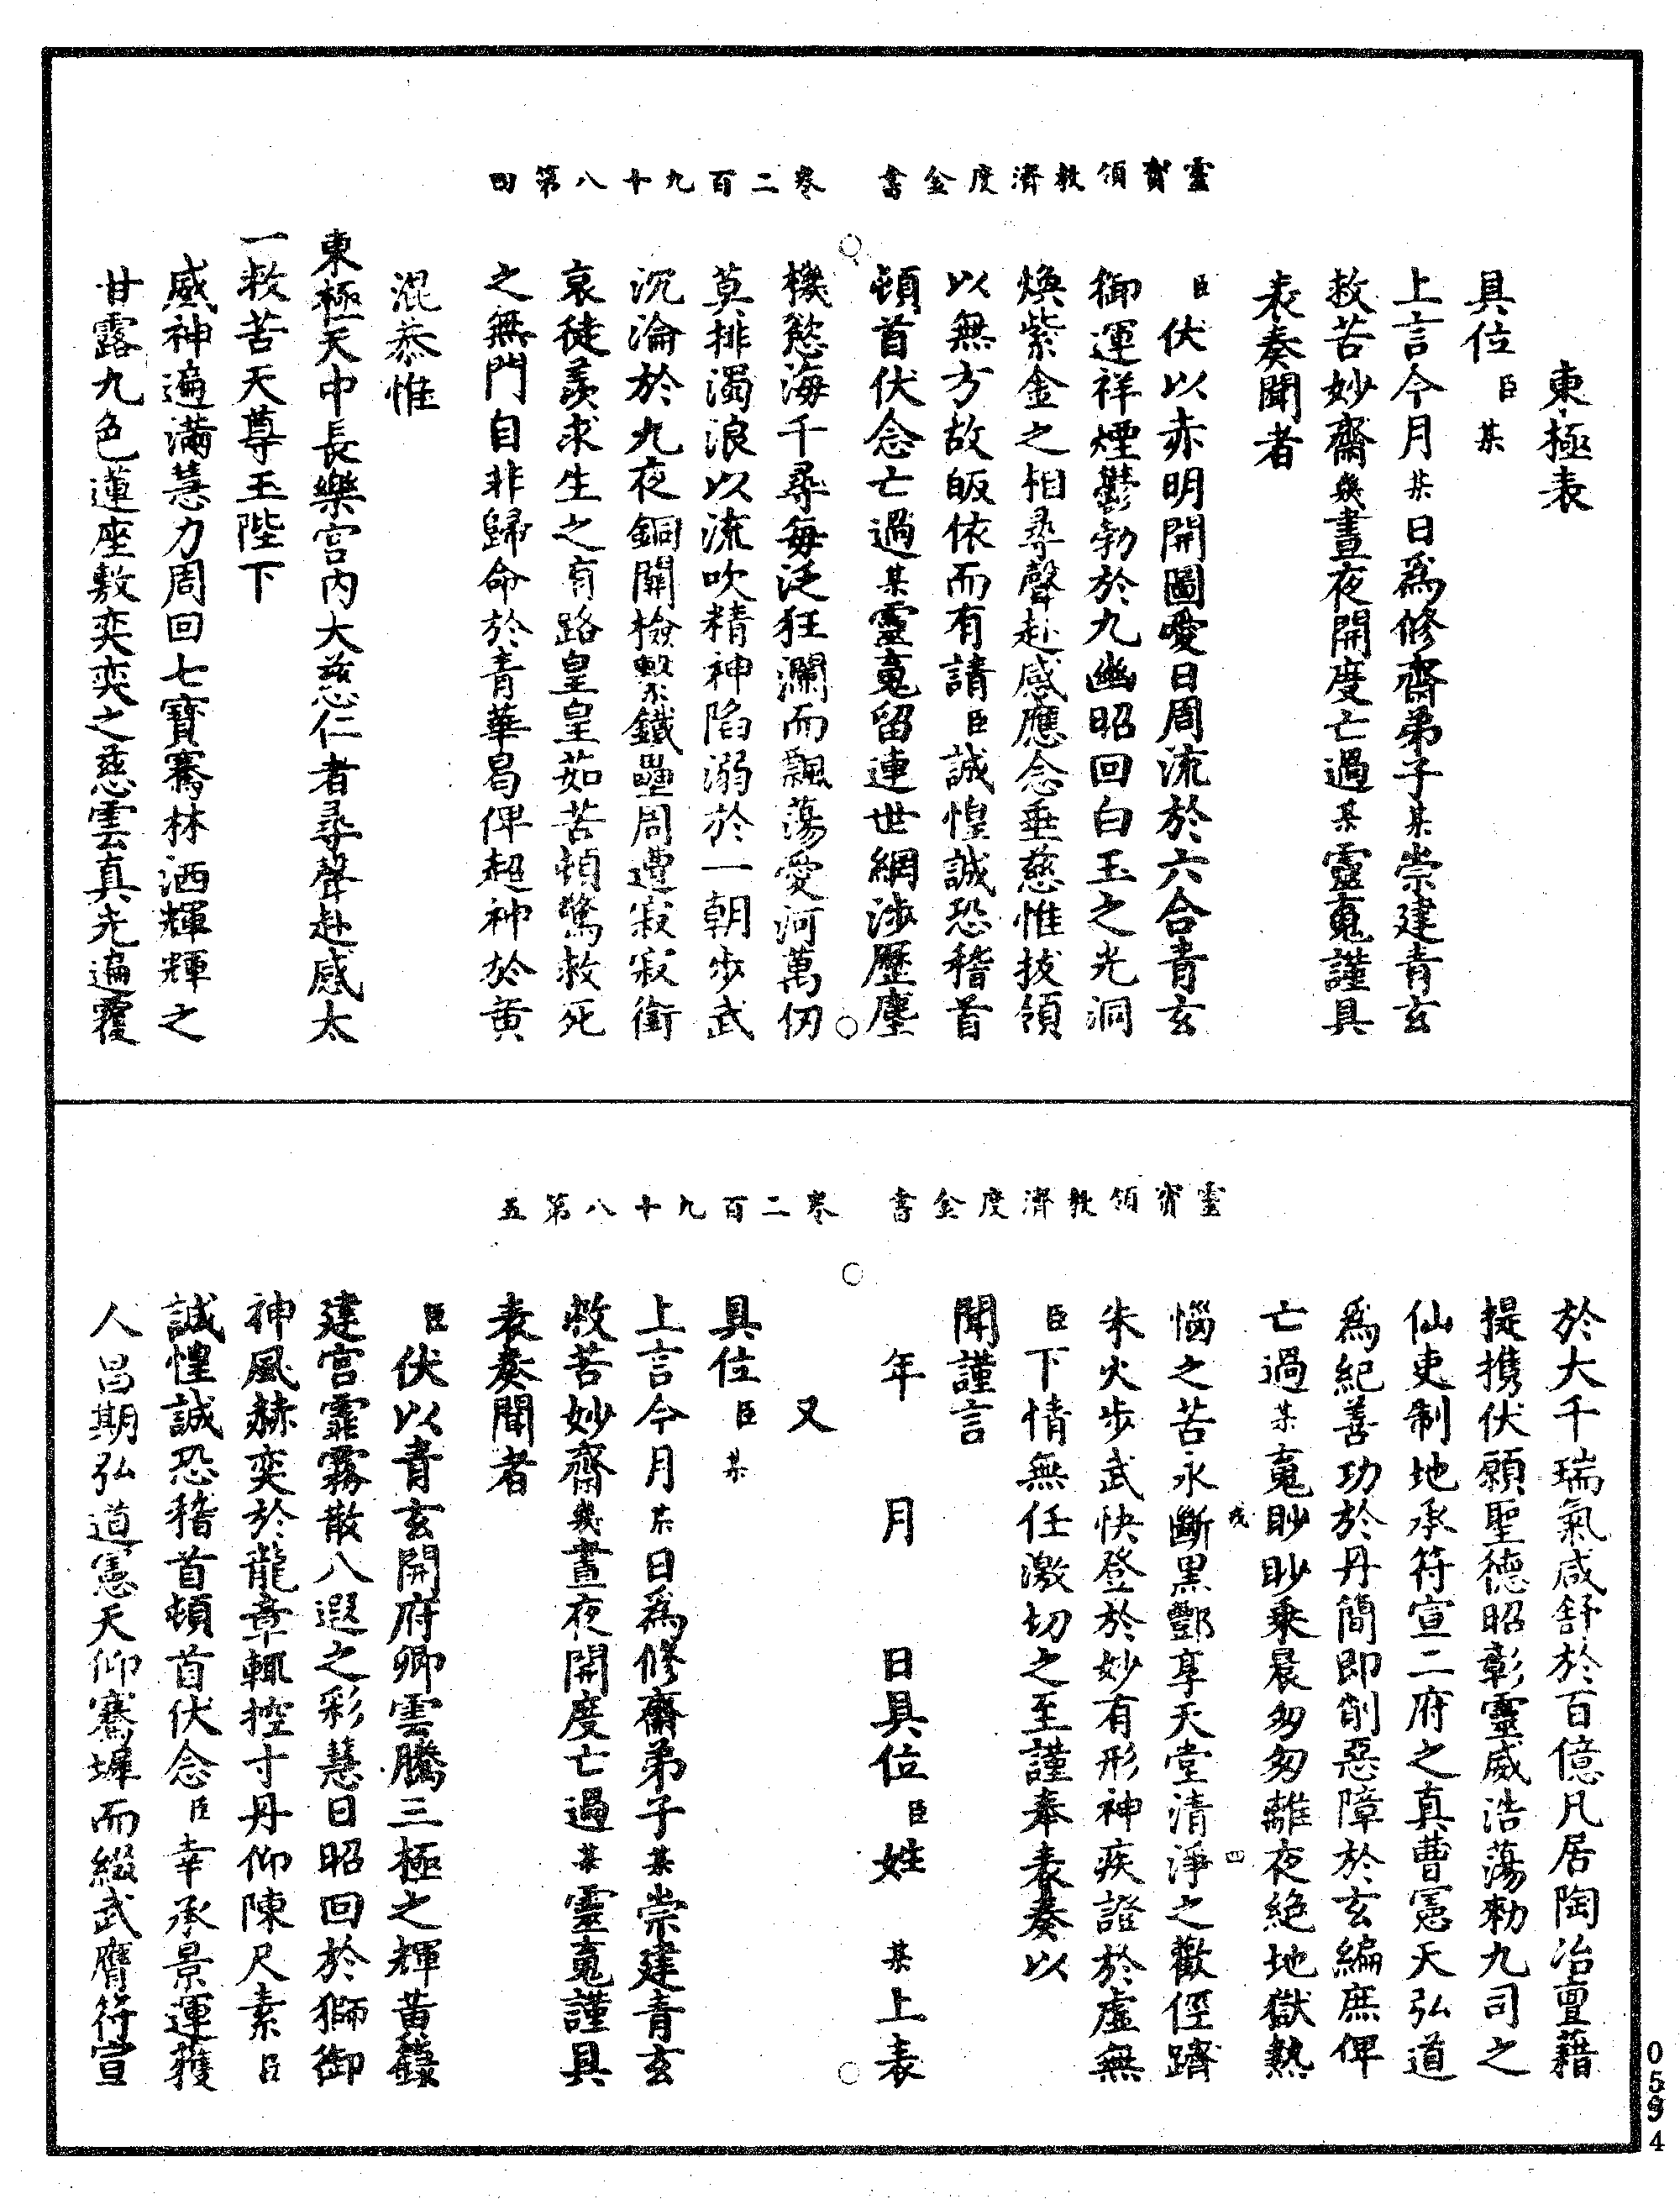 靈寶領教濟度金書　卷二百九十八第四
東極表
具位臣某
上言今月某日爲修齋弟子某崇建青玄
救苦妙齋幾晝夜開度亡過某靈䰟謹具
表奏聞者
臣伏以赤明開圖愛日周流於六合青玄
御運祥煙鬱勃於九幽昭回白玉之光洞
煥紫金之相尋聲赴感應念垂慈惟拔領
以無方故皈依而有請臣誠惶誠恐稽首
頓首伏念亡過某靈䰟留連世網涉歷塵
機慾海千尋每泛狂瀾而飄蕩愛河萬仞
莫排濁浪以流吹精神陷溺於一朝步武
沉淪於九夜銅關檢繫鐵壘周遭寂寂銜
哀徒羨求生之有路皇皇茹苦頓驚救死
之無門自非歸命於青華曷俾超神於黄
混恭惟
東極天中長樂宫内大慈仁者尋聲赴感太
一救苦天尊玉陛下
威神遍滿慧力周回七寶騫林洒輝輝之
甘露九色蓮座敷奕奕之慈雲真光遍覆
靈寶領教濟度金書　卷二百九十八第五
於大千瑞氣咸舒於百億凡居陶冶亶藉
提携伏願聖德昭彰靈威浩蕩勑九司之
仙吏制地承符宣二府之真曹憲天弘道
爲紀善功於丹簡即削惡障於玄編庶俾
亡過某䰟眇眇乘晨匆匆離夜絶地獄熱
惱之苦永斷黑酆享天堂清淨之歡徑躋
朱火步武快登於妙有形神疾證於虛無
臣下情無任激切之至謹奉表奏以
聞謹言
年　月　日具位臣姓　某上表
又
具位臣某
上言今月某日爲修齋弟子某崇建青玄
救苦妙齋幾晝夜開度亡過某靈䰟謹具
表奏聞者
臣伏以青玄開府卿雲騰三極之輝黄籙
建宫霏霧散八遐之彩慧日昭回於獅御
神風赫奕於龍章輒控寸丹仰陳尺素臣
誠惶誠恐稽首頓首伏念臣幸承景運獲
人昌期弘道憲天仰騫墀而綴武膺符宣
0594